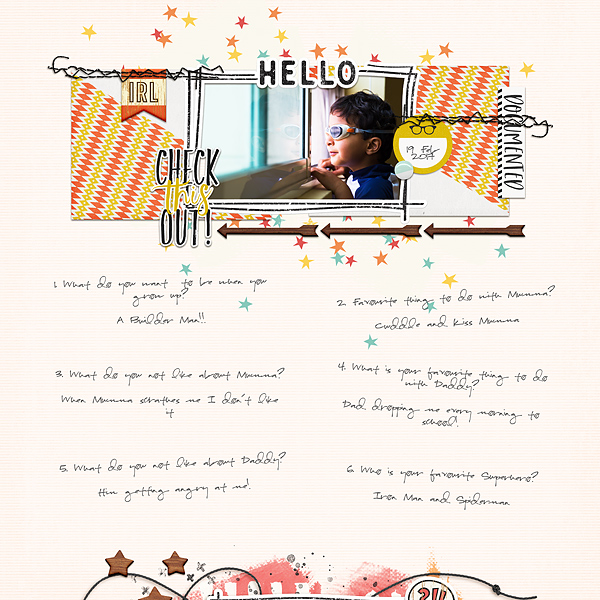 HELLO
IRL
DOCUMENTED
19 Feb
2017
CHECK
this
OUT!
1. What do you want to be when you
grow up?
A Builder Man!!
2. Favourite thing to do with Mumma?
Cudddle and Kiss Mumma
3. What do you not like about Mumma?
When Mumma scrathes me I don't like
it
4. What is your favourite thing to do
with Daddy?
Dad dropping me every morning to
school.
5. What do you not like about Daddy?
Him getting angry at me!
6. Who is your favourite Superhero?
Iron Man and Spiderman